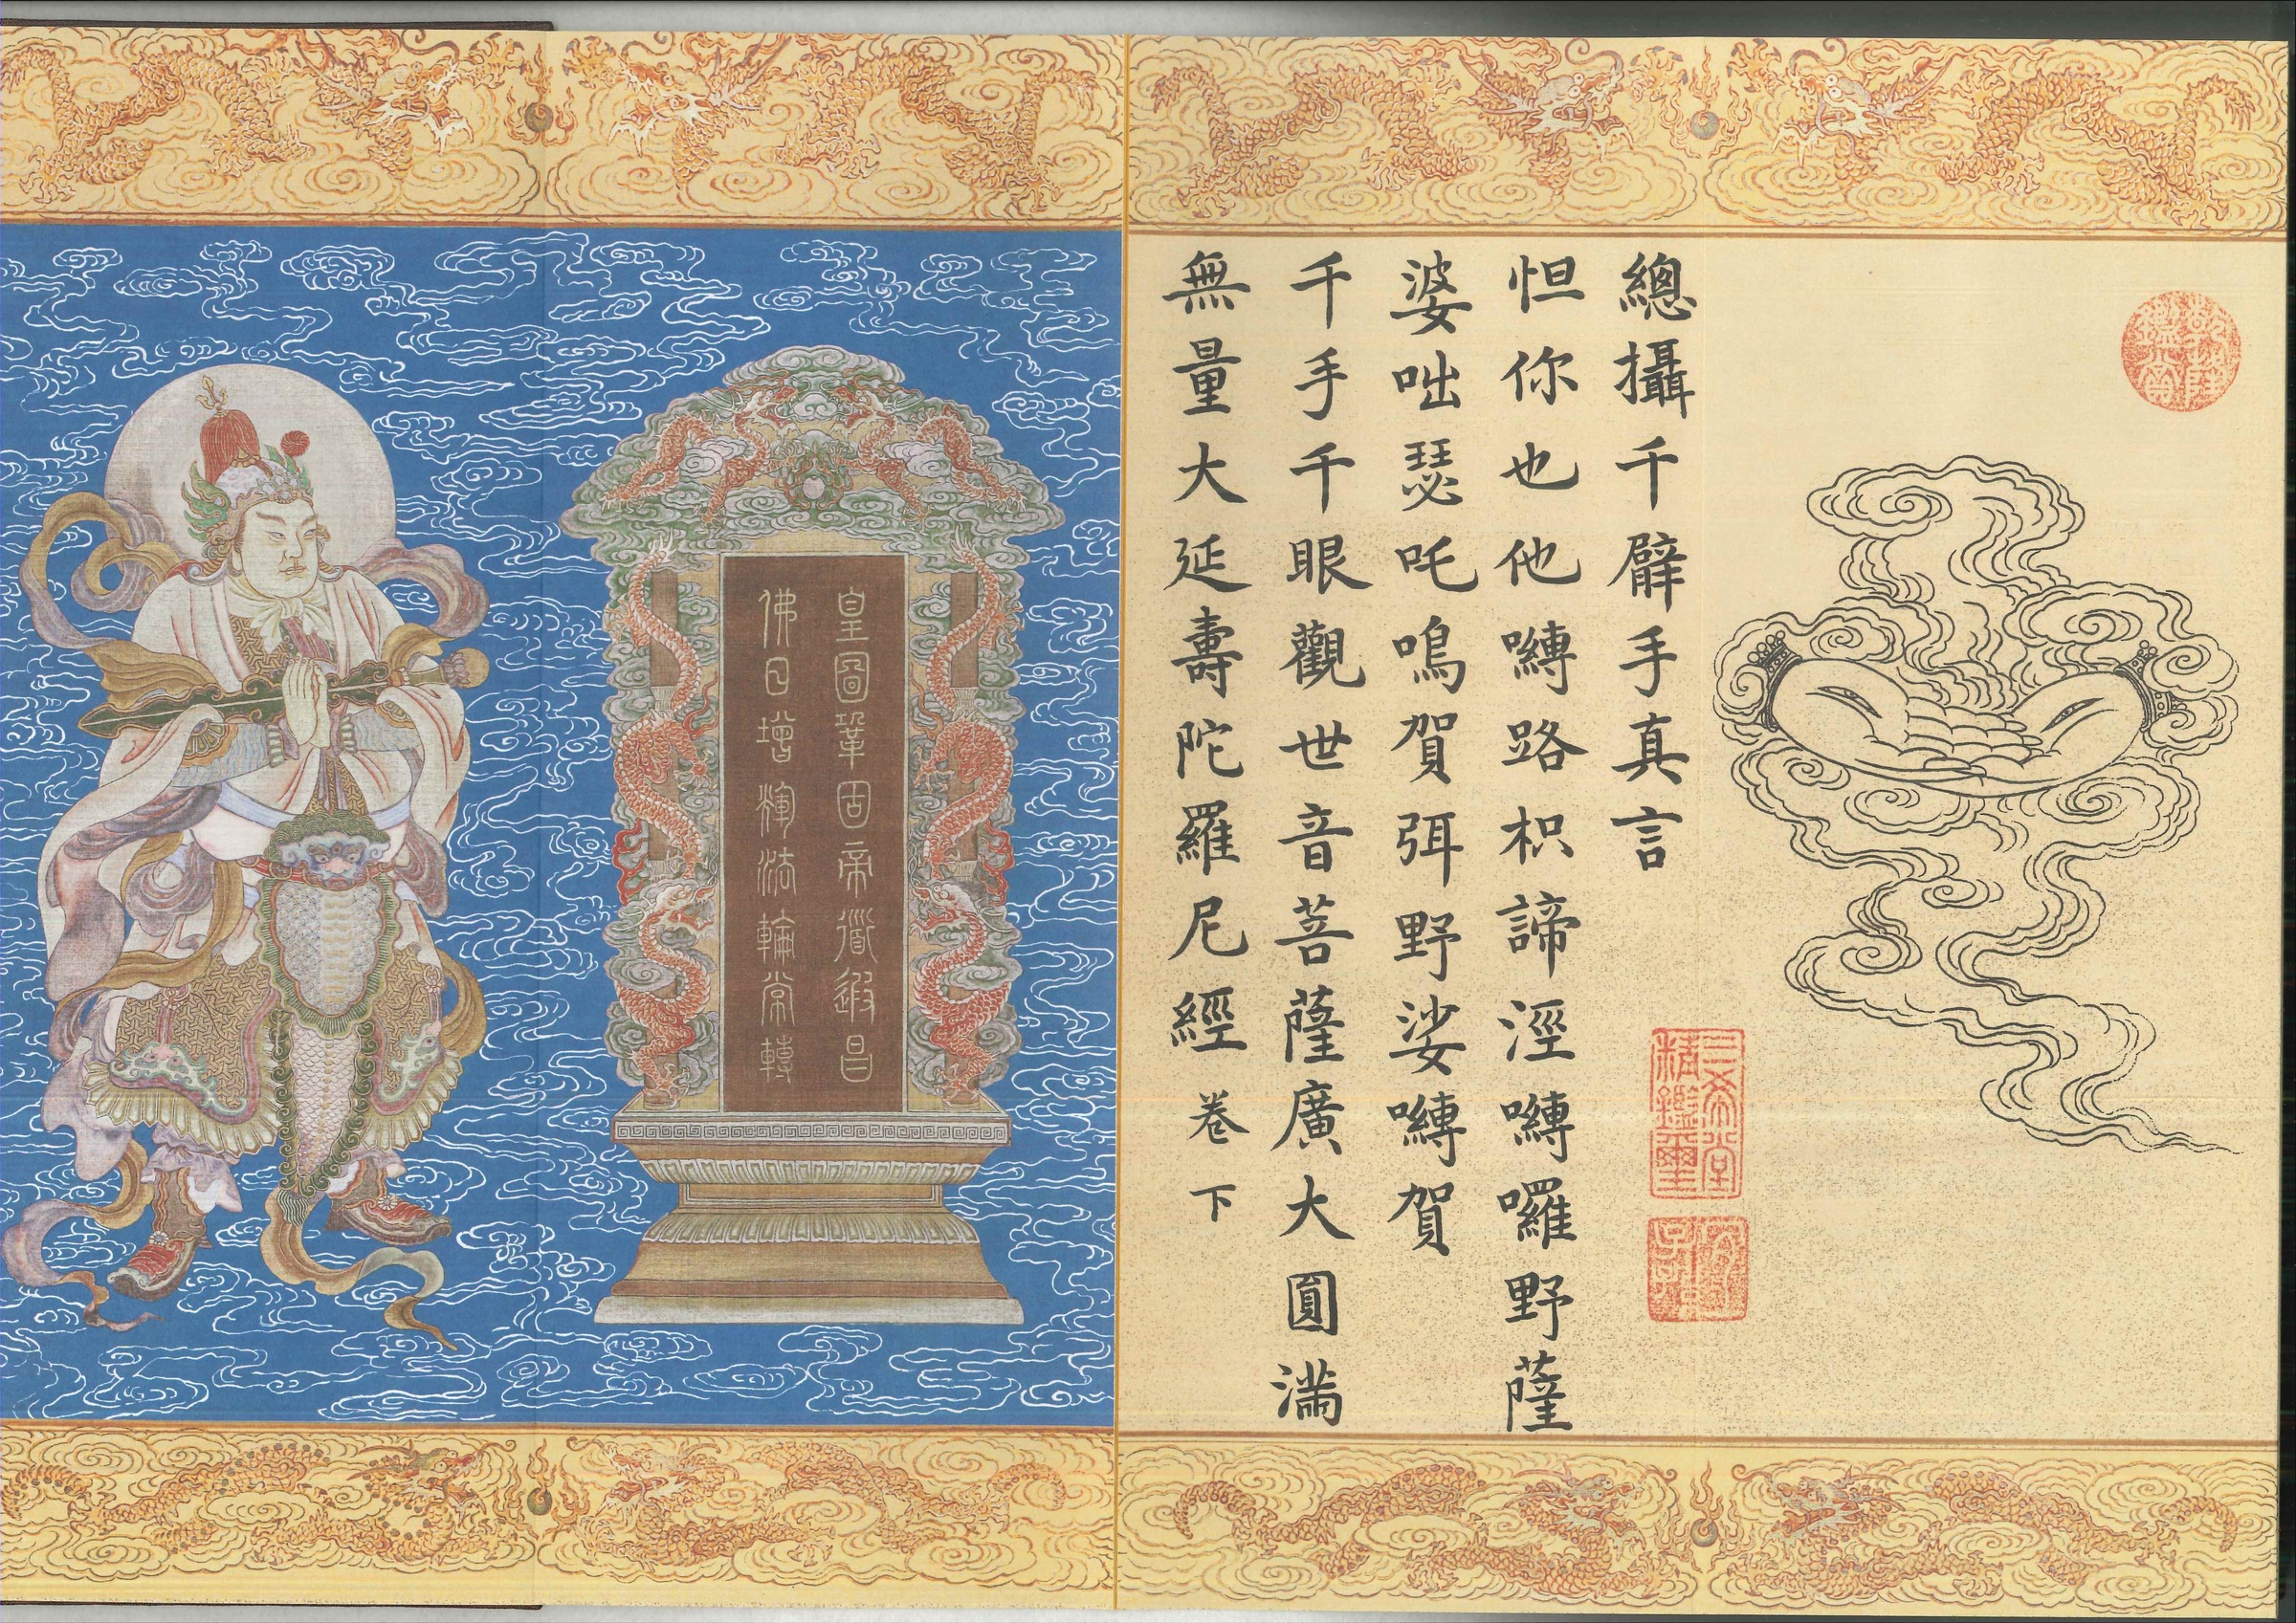 總攝千臂手真言
怛你也他嚩路枳諦溼嚩囉野薩
婆咄瑟吒嗚賀弭野娑嚩賀
千手千眼觀世音菩薩廣大圓滿
無量大延壽陀羅尼經卷下
三希堂
精鑑璽
宜子孫
皇圖鞏固帝道遐昌
佛日增輝法輪常轉